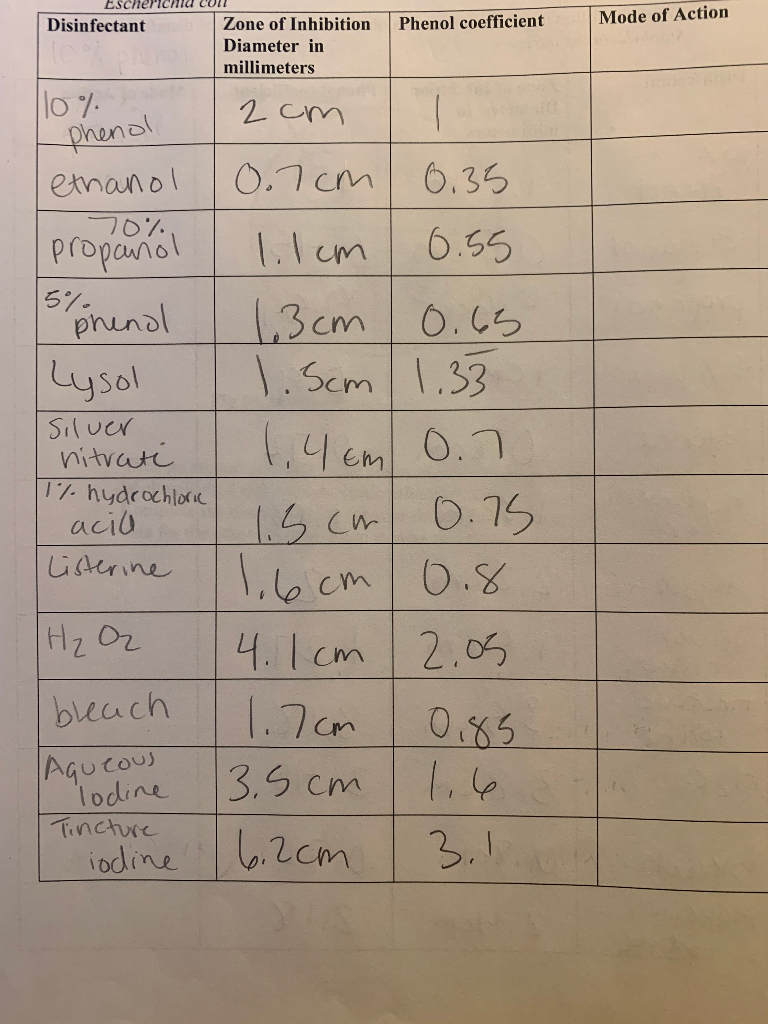 Escherichia coli
Disinfectant
Zone of Inhibition
Diameter in
millimeters
Phenol coefficient
Mode of Action
10%
phenol
2 cm
1
ethanol
0.7 cm
0.35
70%
propanol
1.1 cm
0.55
5%
phenol
1.3 cm
0.65
Lysol
1.5 cm
1.33
Silver
nitrate
1.4 cm
0.7
1% hydrochloric
acid
1.5 cm
0.75
Listerine
1.6 cm
0.8
H2O2
4.1 cm
2.05
bleach
1.7 cm
0.85
Aqueous
Iodine
3.5 cm
1.6
Tincture
iodine
6.2 cm
3.1